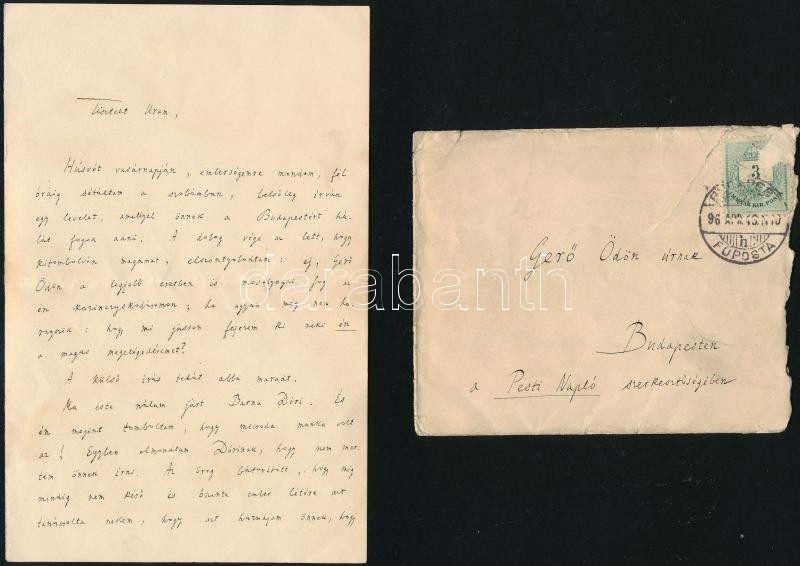 Tisztelt Uram,
Húsvét vasárnapján, emberségemre mondom, fél
óráig sétáltam a szobámban, belsőleg írván
egy levelet, amellyel önnek a Budapestért há-
lát fogok adni. A dolog vége az lett, hogy
kitombolván magamat, elszontyolodtam: ej, Gerő
Ödön a legjobb esetben is mosolyogni fog az
én kazinczyskodásomon; ha ugyan meg nem ha-
ragszik: hogy mi jussom fejezem ki neki én
a magas megelégedésemet?
A külső írás tehát abba maradt.
Ma este nálam járt Barna Dóri. És
én megint tomboltam, hogy micsoda munka volt
az! Egyben elmondtam Dórinak, hogy nem mer-
tem önnek írni. Az öreg bátorított, hogy még
mindig nem késő és őszinte ember létére azt
tanácsolta nekem, hogy azt hazudjam önnek, hogy
Gerő Ödön úrnak
Budapesten
a Pesti Napló szerkesztőségében
3
MAGYAR KIR. POSTA
BUDAPEST
96 APR.
FŐPOSTA
darabanth